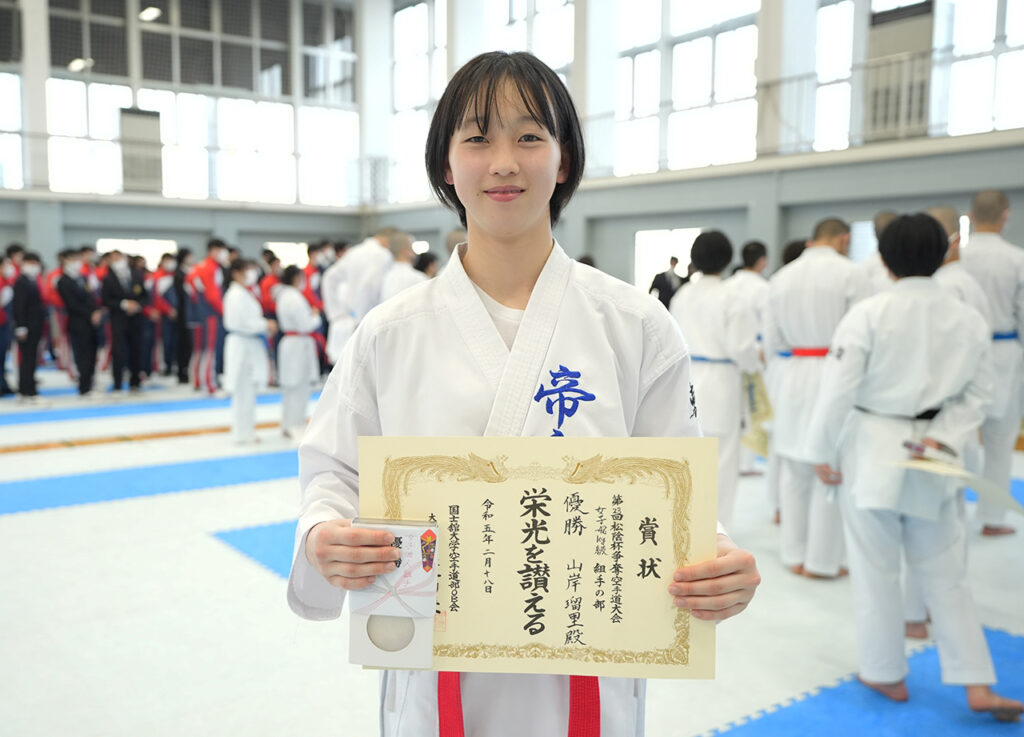 賞状
第23回松陰杯争奪空手道大会
組手の部
優勝 山岸瑠里殿
栄光を讃える
令和五年二月十八日
国士舘大学空手道部OB会
優勝
帝